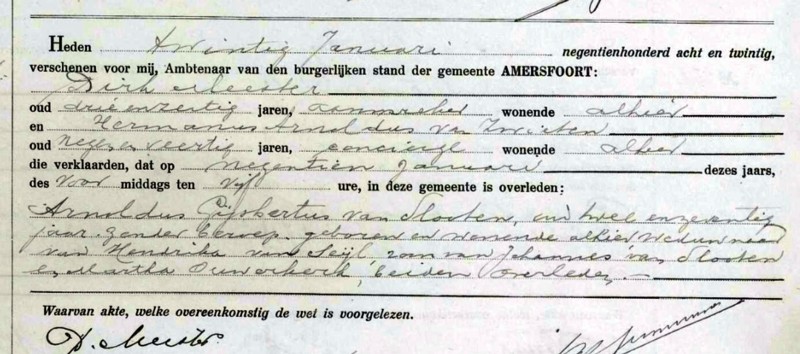 Heden twintig Januari negentienhonderd acht en twintig,
verschenen voor mij, Ambtenaar van den burgerlijken stand der gemeente AMERSFOORT:
Dirk Meester
oud drieenzestig jaren, aanspreker wonende alhier
en Hermanus Arnoldus van Zwieten
oud negen en veertig jaren, concierge wonende alhier
die verklaarden, dat op negentien Januari dezes jaars,
des voor middags ten vijf ure, in deze gemeente is overleden:
Arnoldus Gijsbertus van Slooten, oud twee en zeventig
jaar, zonder beroep, geboren en wonende alhier Weduwnaar
van Hendrika van Seijl, zoon van Johannes van Slooten
en Martha Ouwerkerk, beiden overleden.
Waarvan akte, welke overeenkomstig de wet is voorgelezen.
D. Meester